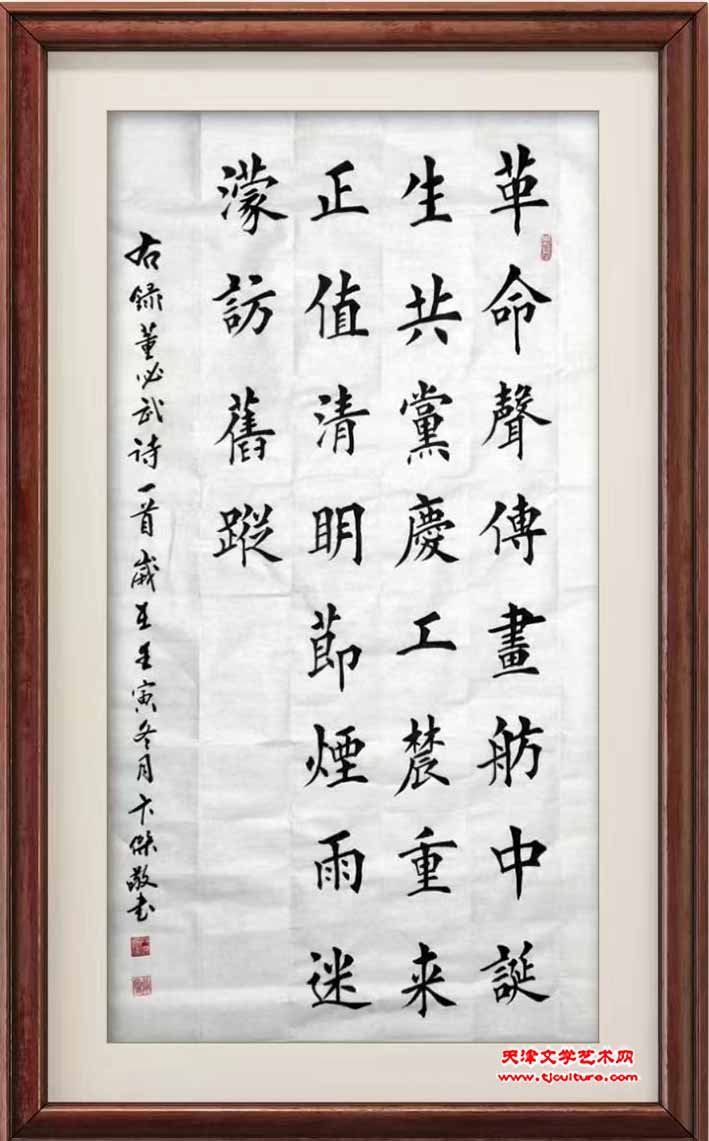 革命聲傳畫舫中誕
生共黨慶工農重来
正值清明節煙雨迷
濛訪舊蹤
右録董必武诗一首歲在壬寅冬月卞傑敬书
天津文学艺术网
www.tjculture.com